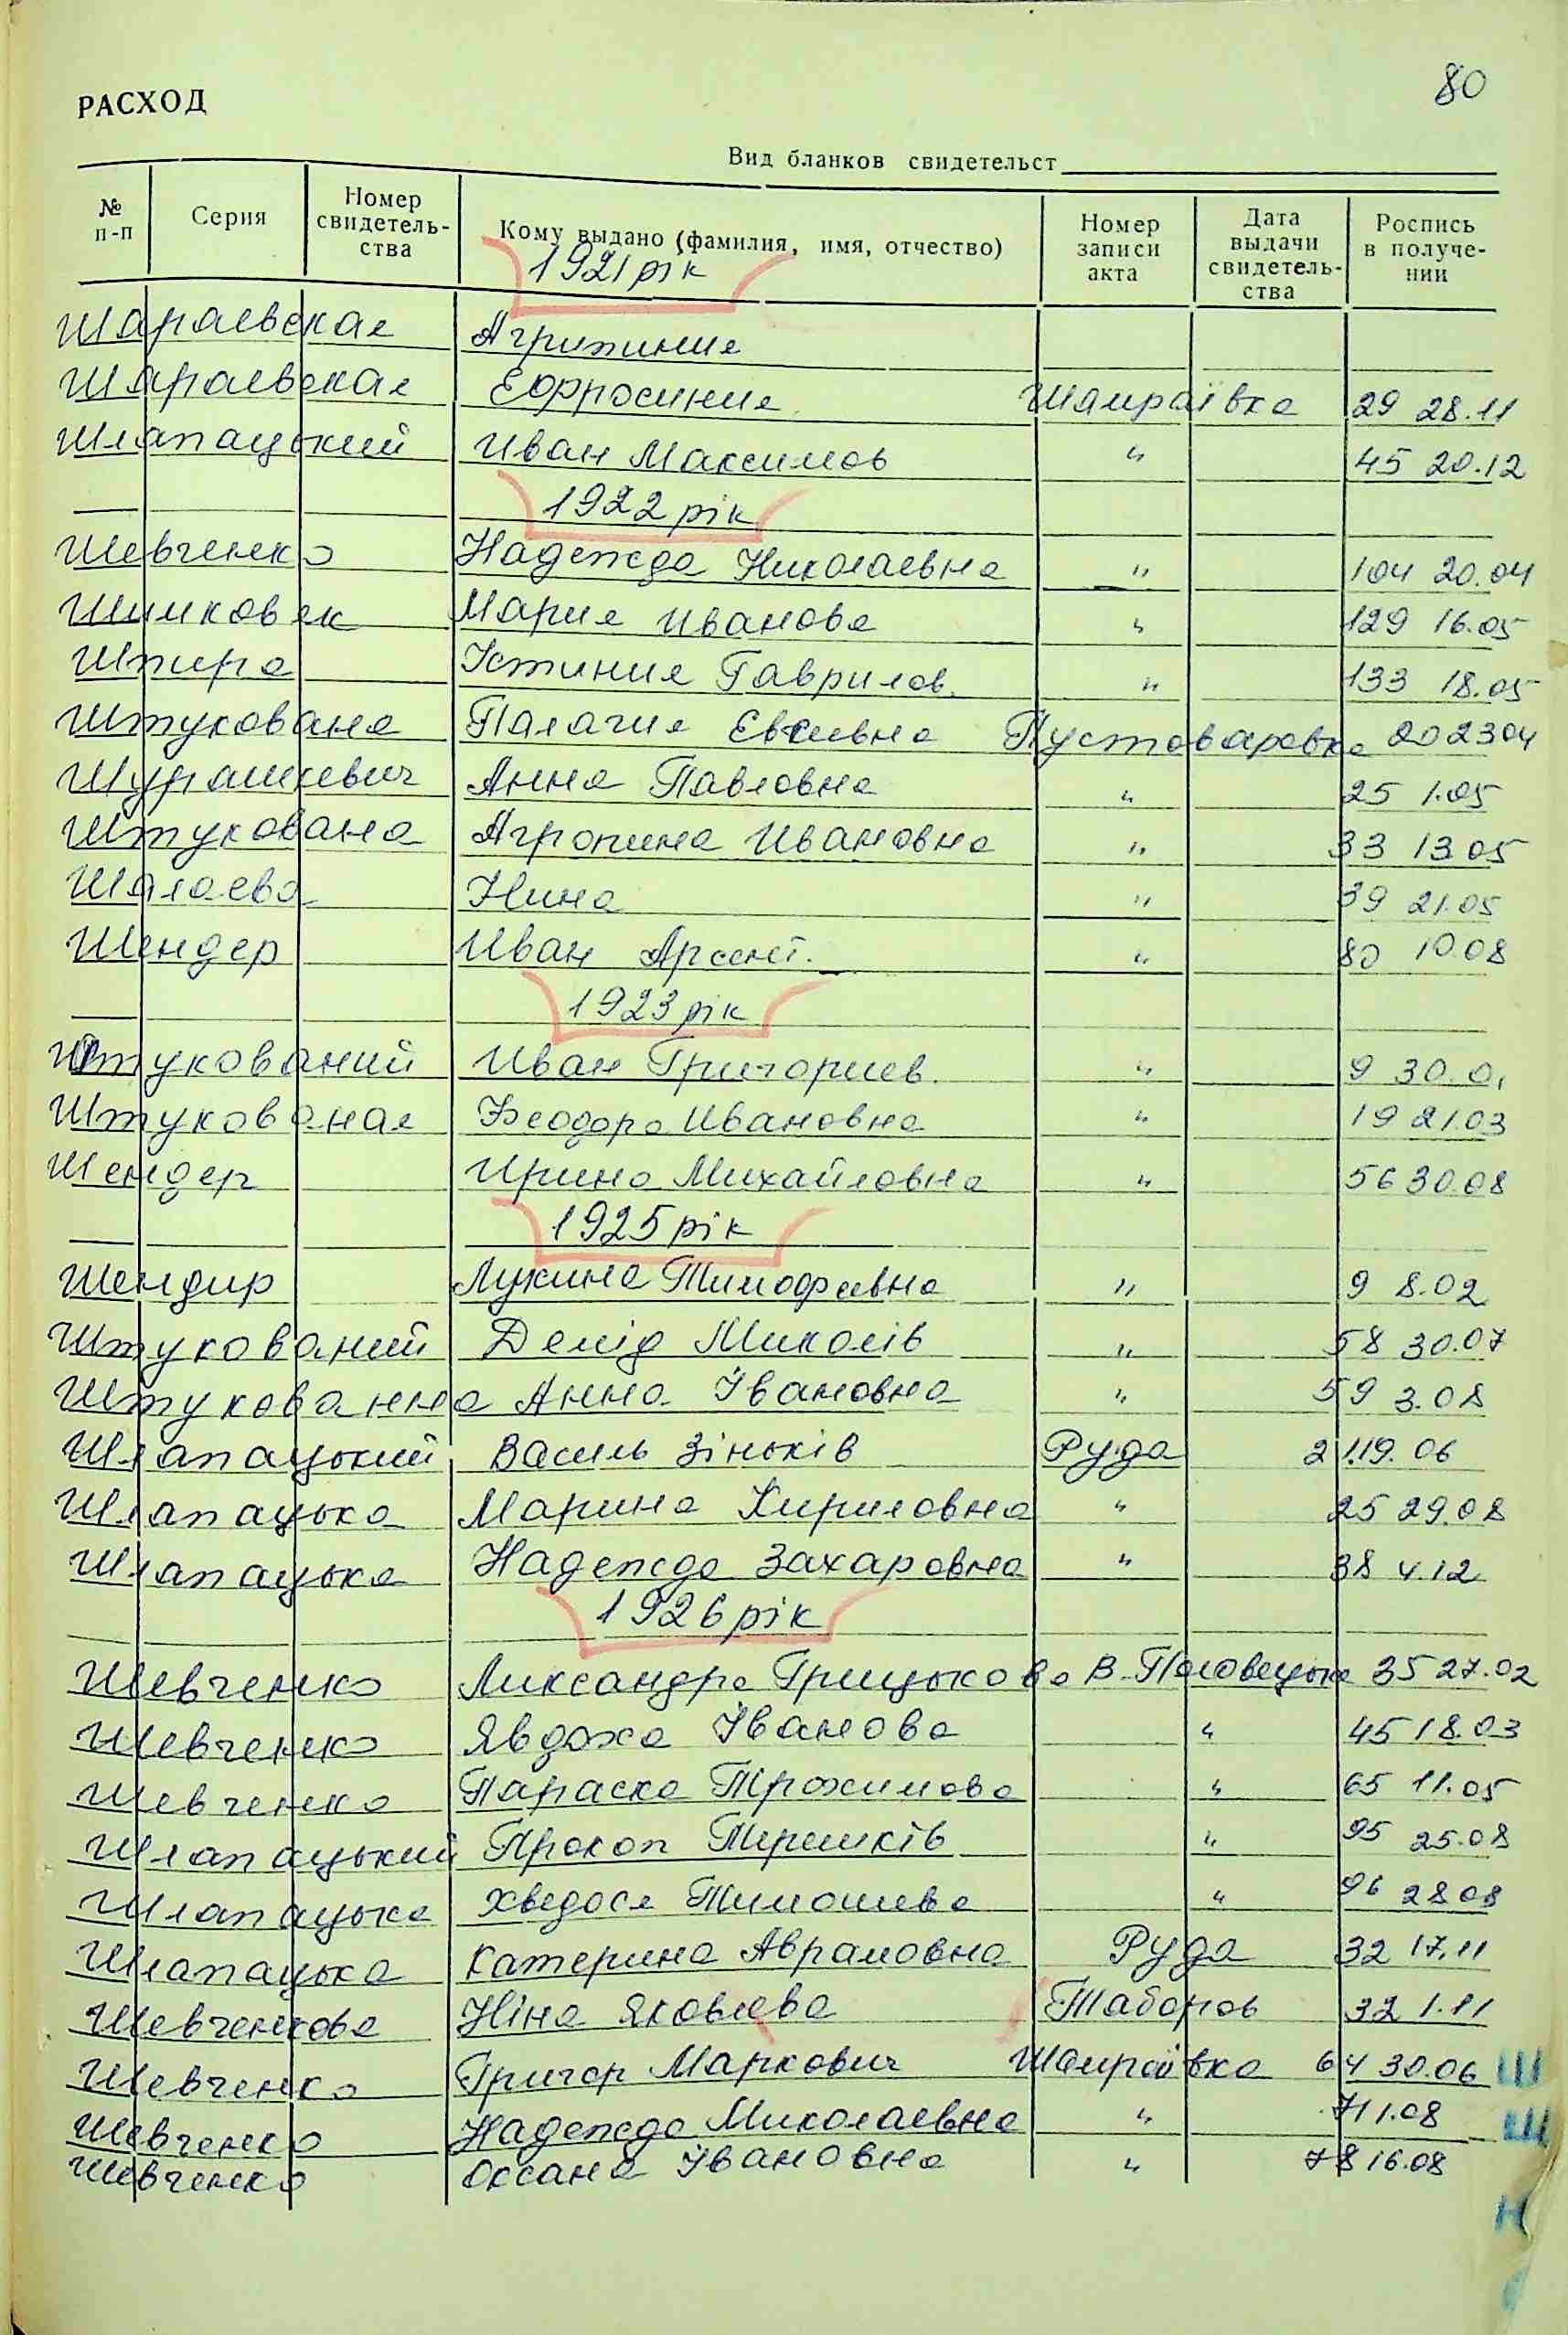 80
РАСХОД
Вид бланков свидетельст
№ п-п Серия Номер свидетель-ства Кому выдано (фамилия, имя, отчество) Номер записи акта Дата выдачи свидетель-ства Роспись в получе-нии
1921 рік
Шараевская Агрипиния
Шараевская Ефросиния Шамраївка 29 28.11
Шлапацький Иван Максимов " 45 20.12
1922 рік
Шевченко Надежда Николаевна " 104 20.04
Шимковяк Мария Иванова " 129 16.05
Шпира Устиния Гаврилов. " 133 18.05
Штукована Палагия Евсивна Пустоваровка 20 23 04
Шурашкевич Анна Павловна " 25 1.05
Штукована Агропина Ивановна " 33 13 05
Шалаева Нина " 39 21.05
Шендер Иван Арсент. " 80 10.08
1923 рік
Штукований Иван Григориев. " 9 30.0
Штукованая Феодора Ивановна " 19 21.03
Шендер Ирина Михайловна " 56 30.08
1925 рік
Шендир Лукина Тимофеевна " 9 8.02
Штукований Демід Миколів " 58 30.07
Штукованна Анна Івановна " 59 3.08
Шлапацький Василь Зіньків Руда 21 19.06
Шлапацька Марина Кириловна " 25 29.08
Шлапацька Надежда Захаровна " 38 4.12
1926 рік
Шевченко Ликсандра Грицькова В-Половецьке 35 27.02
Шевченко Явдоха Іванова " 45 18.03
Шевченко Параска Трохимова " 65 11.05
Шлапацький Прокоп Терешків " 95 25.08
Шлапацька Хведося Тимошева " 96 28 08
Шлапацька Катерина Аврамовна Руда 32 17.11
Шевченкова Ніна Яковлева Таборов 32 1.11
Шевченко Григор Маркович Шамраївка 64 30.06 Ш
Шевченко Надежда Миколаевна " 71 1.08 Ш
Шевченко Оксана Івановна " 78 16.08
Н